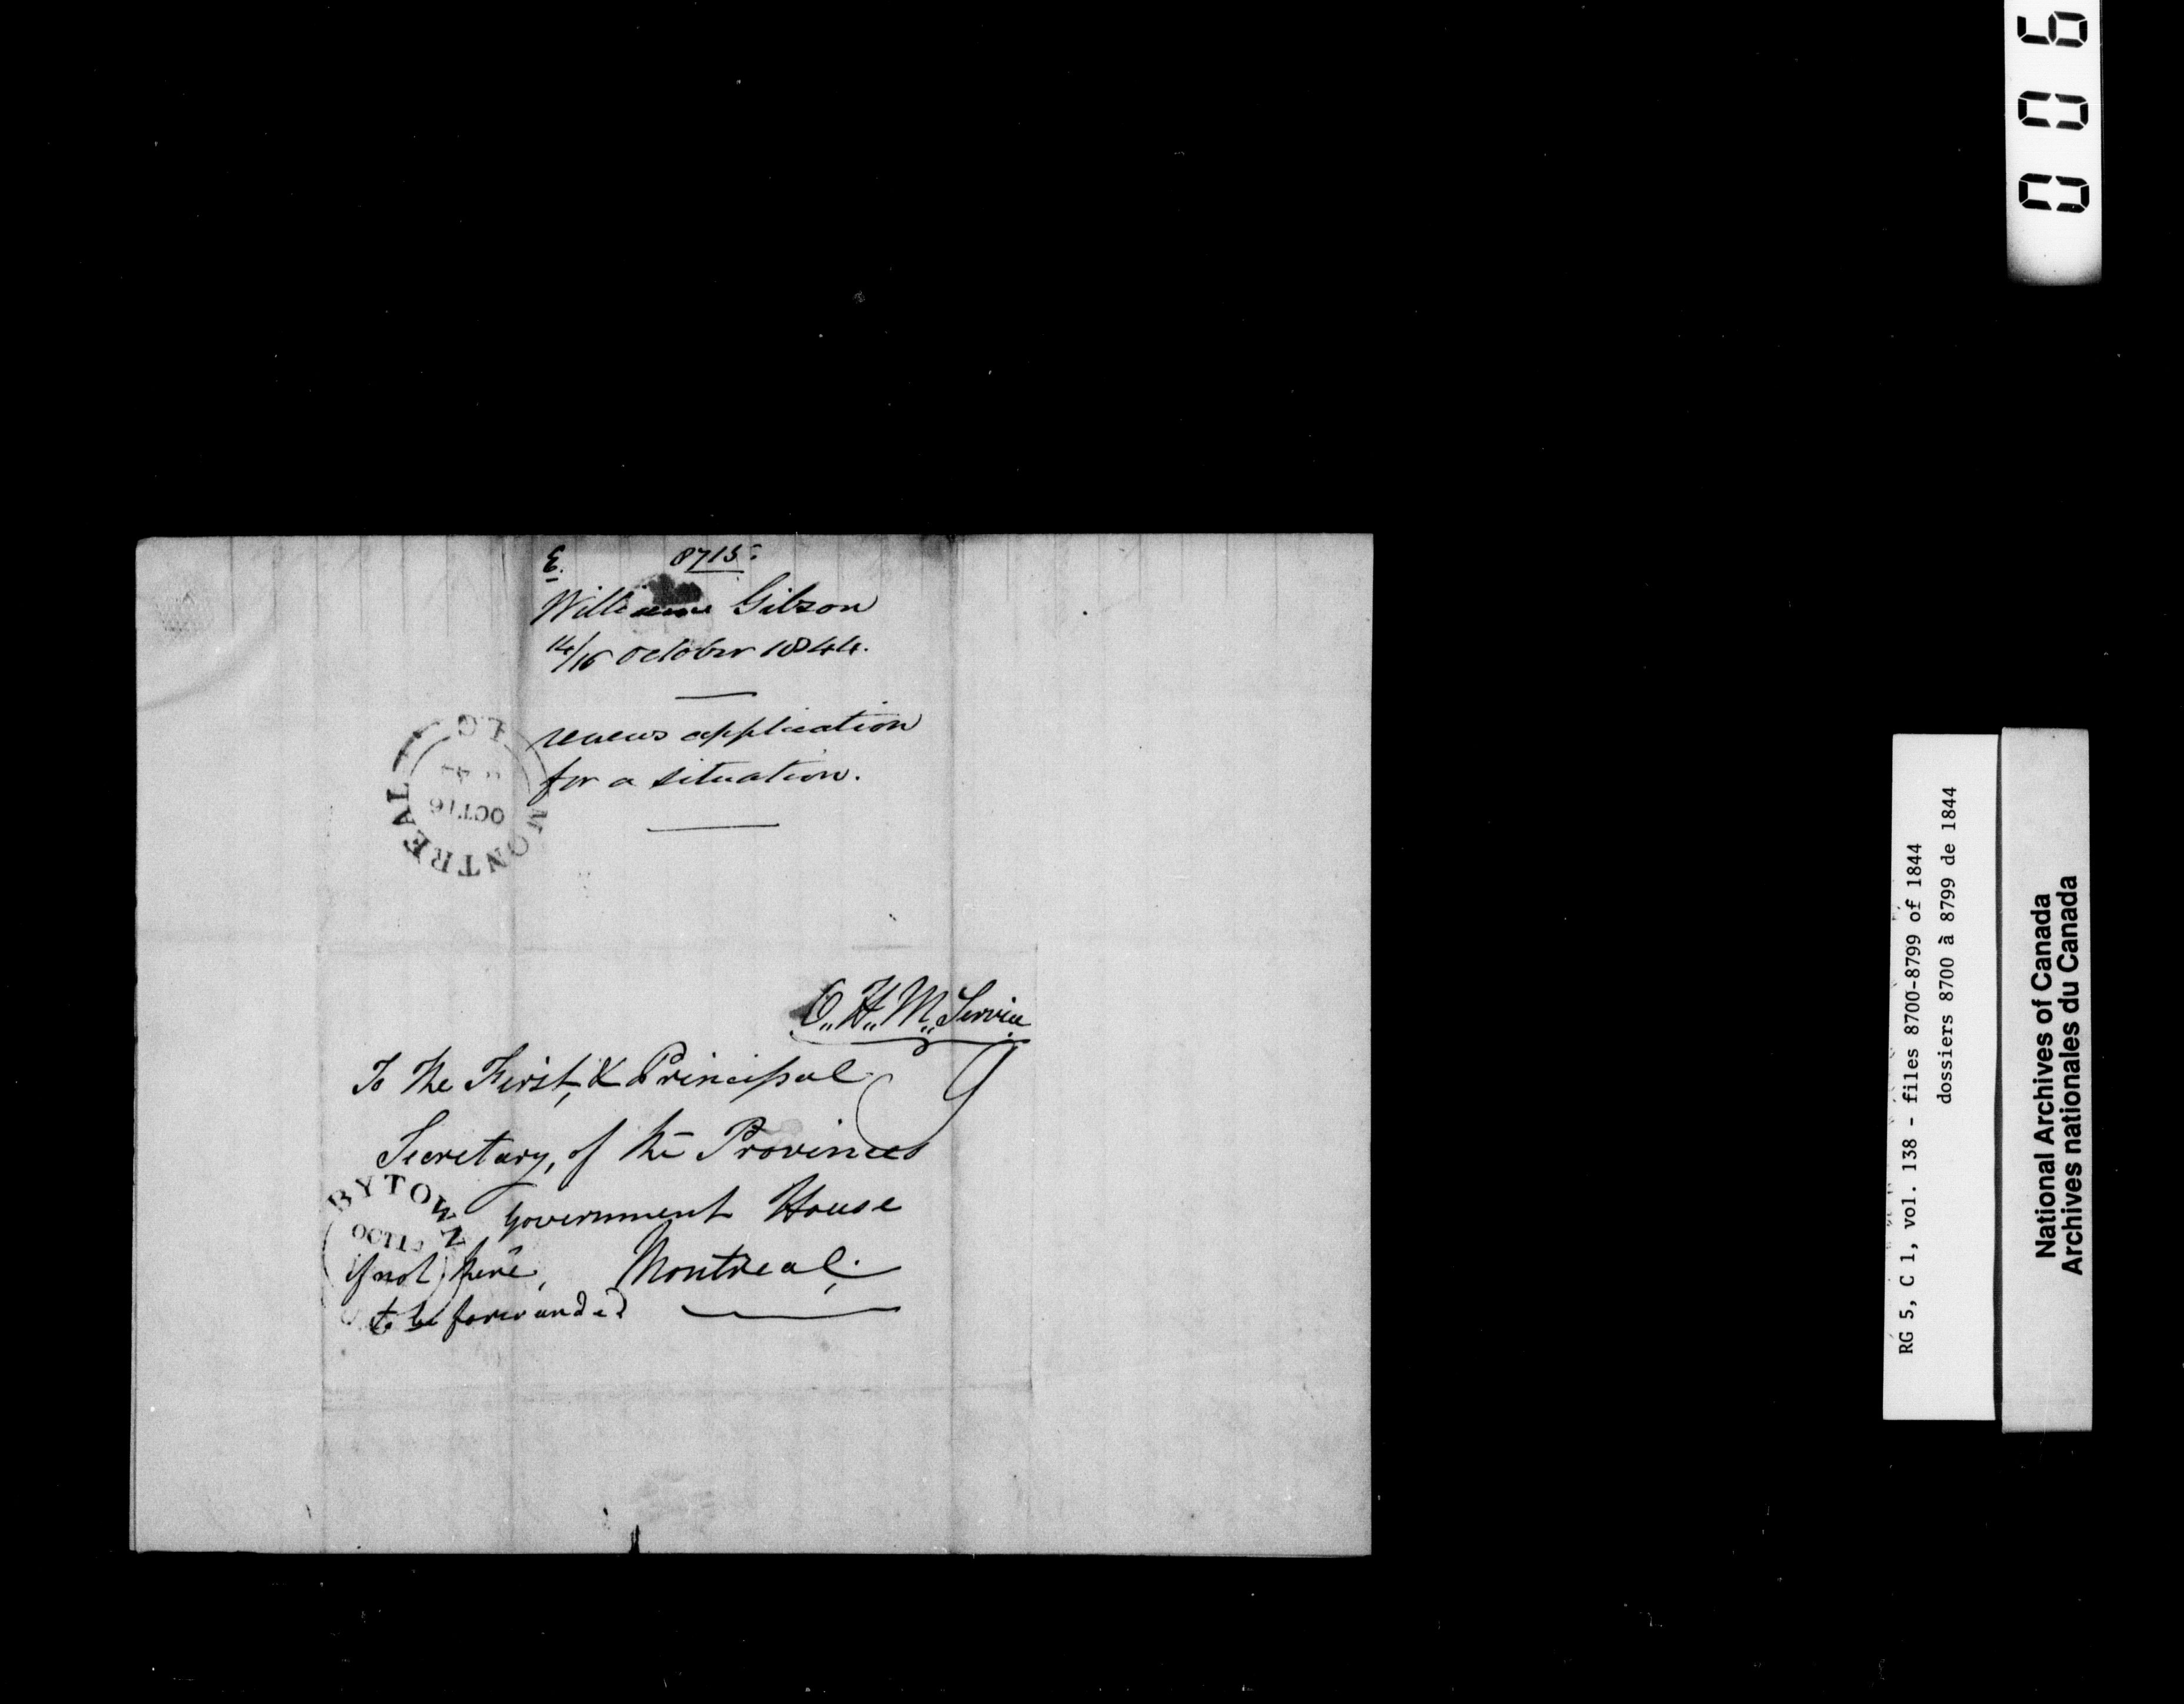 E. 8715
William Gibson
14/16 October 1844.
renews application
for a situation.
MONTREAL
OCT 16
O. H. M. Service
To The First, & Principal
Secretary, of the Provinces
Government House
Montreal.
if not there,
to be forwarded
BYTOWN
OCT 1
006
RG 5, C 1, vol. 138 - files 8700-8799 of 1844
dossiers 8700 à 8799 de 1844
National Archives of Canada
Archives nationales du Canada